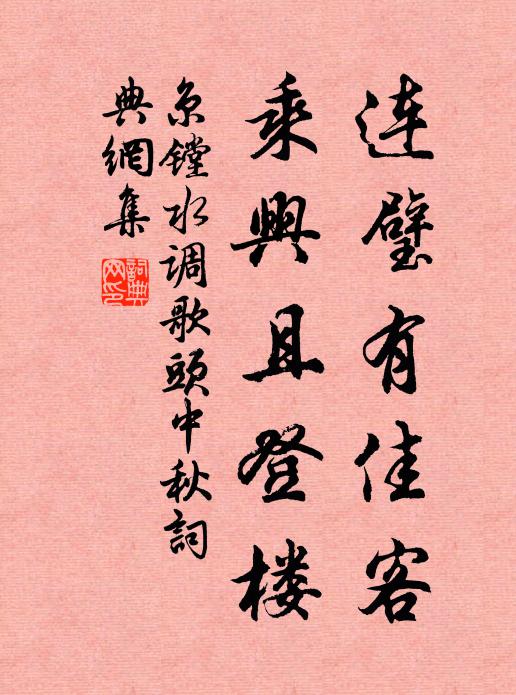 连璧有佳客
乘興且登楼
京镗水调歌頭中秋詞
典網集
詞典网印